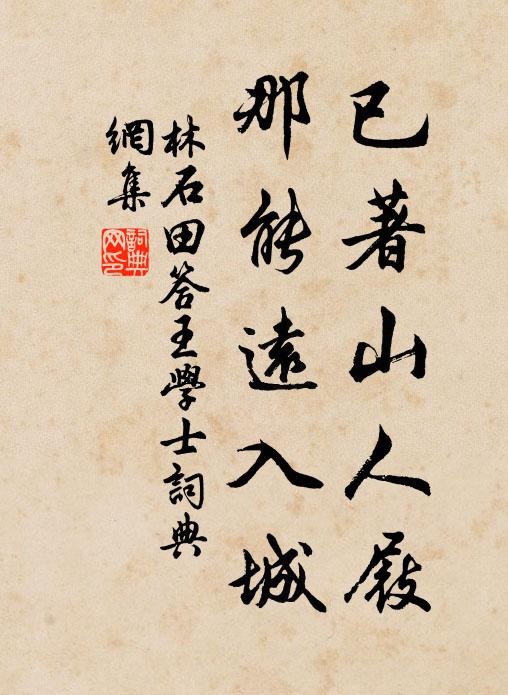 已著山人屐
那能遠入城
林石田答王學士詞典
網集
詞典
網印